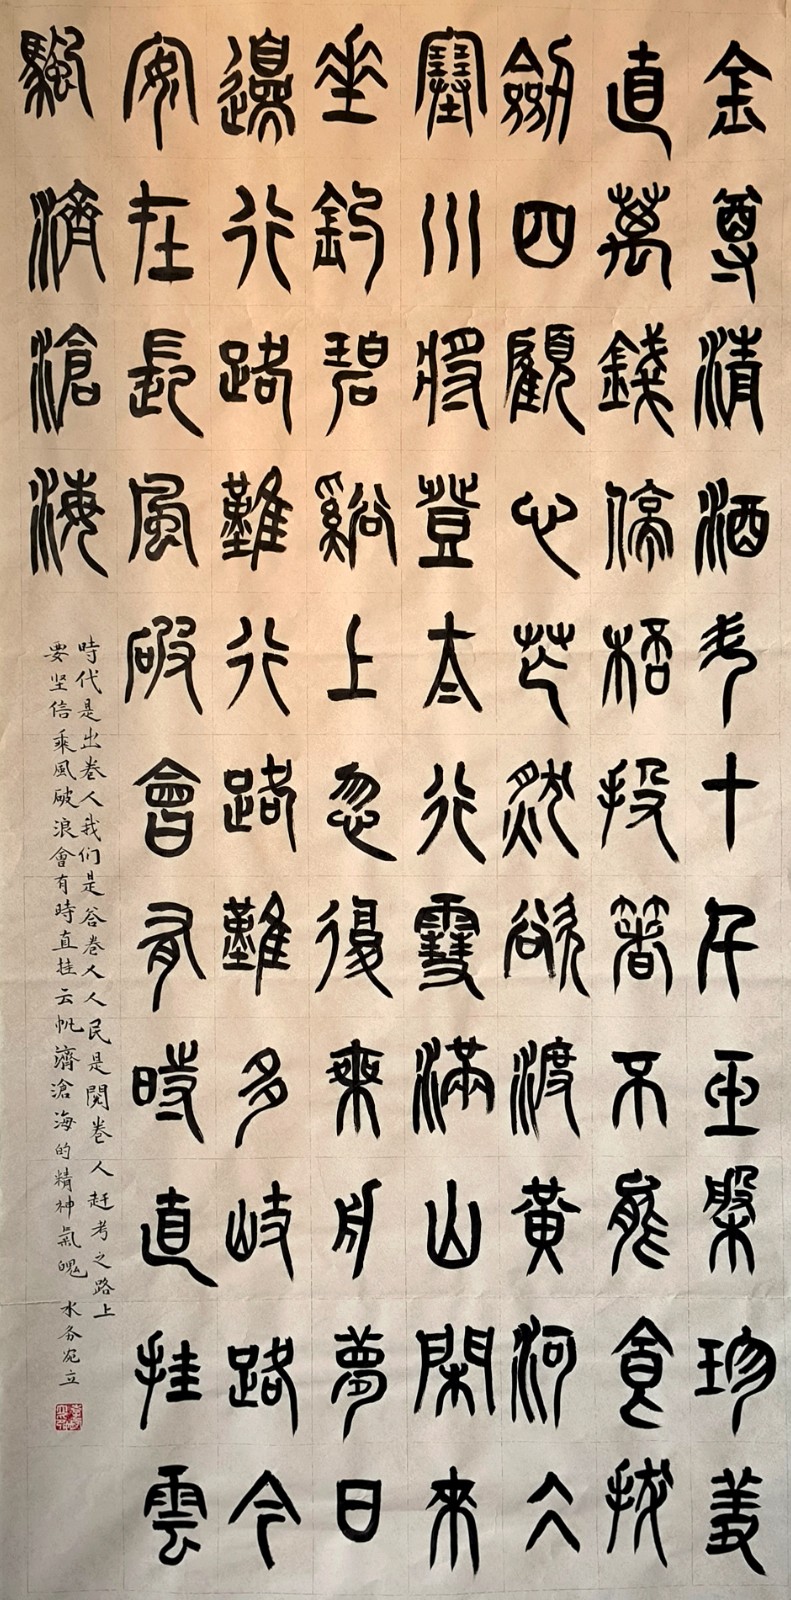 金尊清酒斗十千玉盤珍羞
直萬錢停桮投箸不能食拔
劒四顧心茫然欲渡黃河仌
塞川將登太行雪滿山閑來
坐釣碧谿上忽復乘舟夢日
邊行路難行路難多岐路今
安在長風破會有時直挂雲
颿濟滄海
時代是出卷人我们是答卷人人民是閱卷人赶考之路上
要坚信乘風破浪會有時直挂云帆濟滄海的精神氣魄 水务宛立